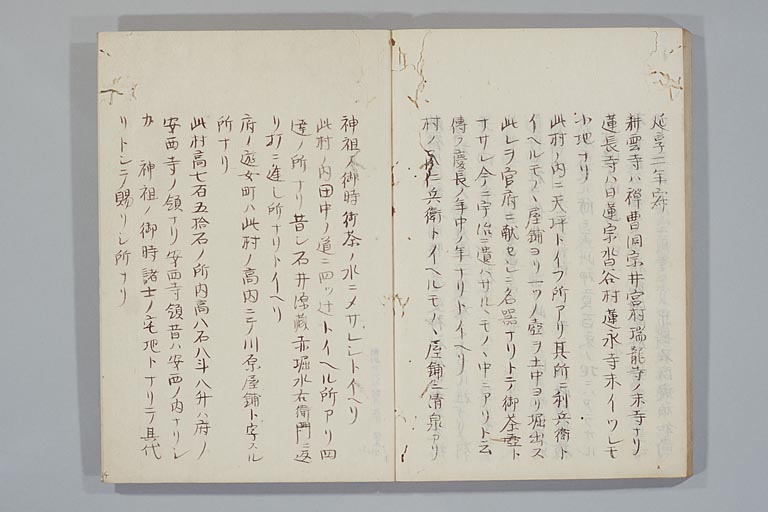 延享二年寂
耕雲寺ハ禅曹洞宗井宮村瑞龍寺ノ末寺ナリ
蓮長寺ハ日蓮宗沓谷村蓮永寺末イツレモ
小地ナリ
此村ノ内ニ天坪トイフ所アリ其所ニ利兵衛ト
イヘルモノヽ屋鋪ヨリ一ツノ壺ヲ土中ヨリ堀出ス
此レヲ官府ニ献セシニ名器ナリトテ御茶壺ト
ナサレ今ニ宇治ニ遣ハサルヽモノヽ中ニアリト云
傳フ慶長ノ年中ノ年ナリトイヘリ
村ノ仁兵衛トイヘルモノヽ屋鋪ニ清泉アリ
神祖御時御茶ノ水ニメサレシトイヘリ
此村ノ内田中ノ道ニ四ツ辻トイヘル所アリ四
辻ノ所ナリ昔シ石井源蔵赤堀水右衛門ニ返
リ打ニ逢シ所ナリトイヘリ
府ノ遊女町ハ此村ノ高内ニテ川原屋鋪ト字スル
所ナリ
此村高七石五拾石ノ所内高八石八斗八升ハ府ノ
安西寺ノ領ナリ安西寺領昔ハ安西ノ内ナリシ
カ 神祖ノ御時諸士ノ宅地トナリテ其代
リトシテ賜リシ所ナリ